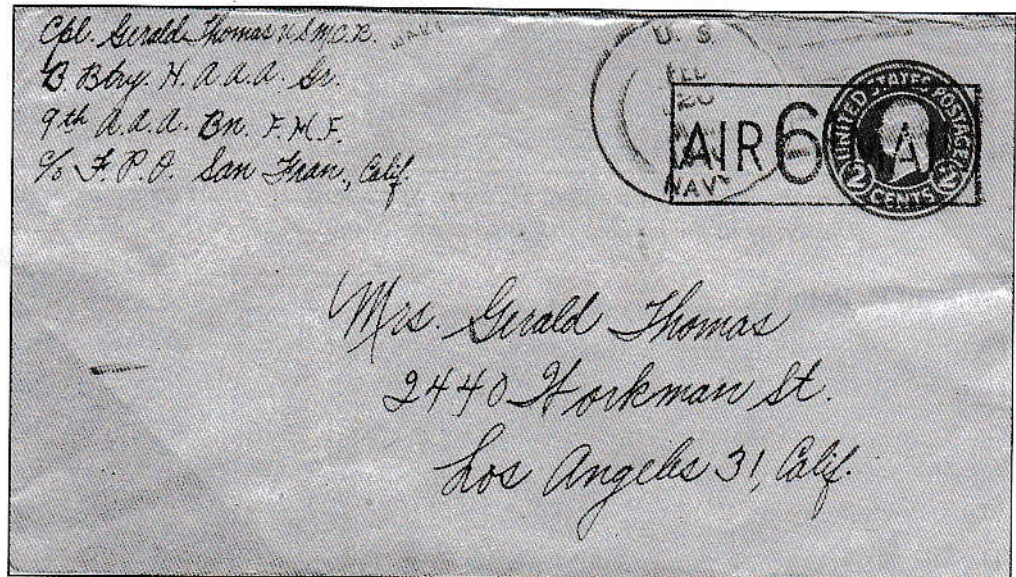 Cpl. Gerald Thomas U.S.M.C.R.
B. Btry. H. A.A.A. Gr.
9th A.A.A. Bn. F.M.F.
c/o F.P.O. San Fran., Calif.
NAVY
U. S.
FEB
20
NAVY
AIR 6
UNITED STATES POSTAGE
2 CENTS 2
A
Mrs. Gerald Thomas
2440 Workman St.
Los Angeles 31, Calif.